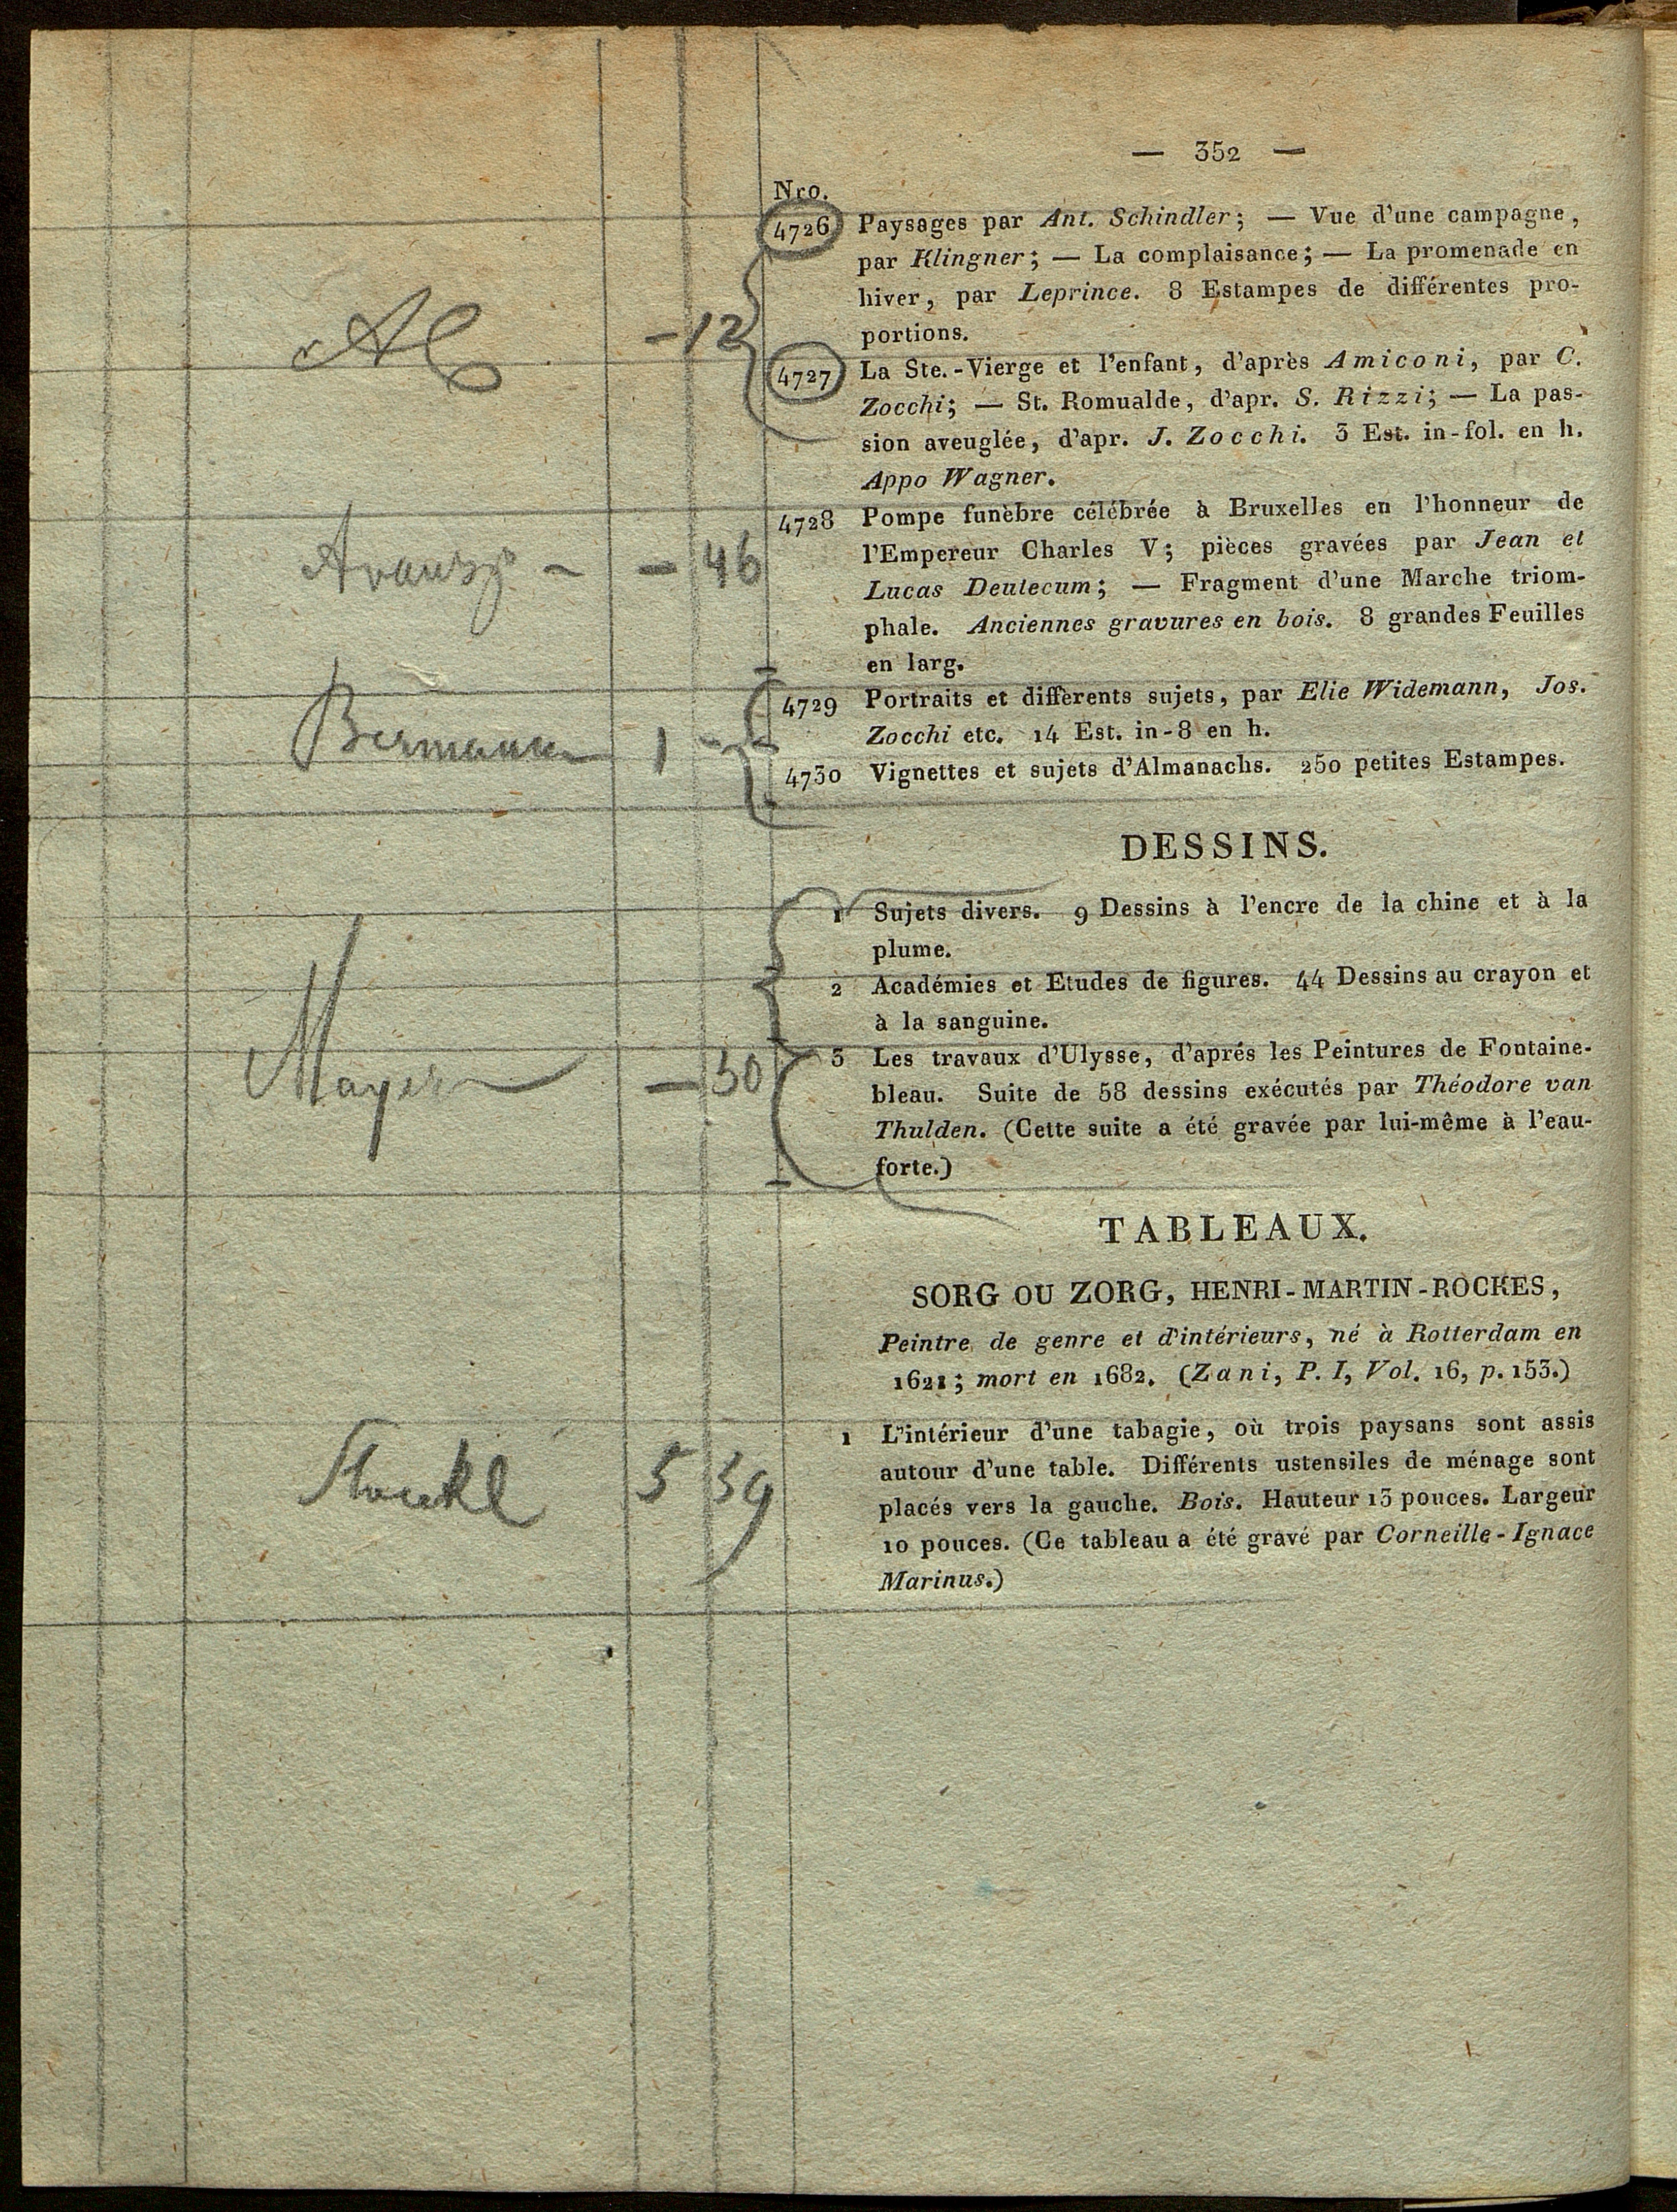 — 352 —
Nro.
4726 Paysages par Ant. Schindler; — Vue d'une campagne,
par Klingner; — La complaisance; — La promenade en
hiver, par Leprince. 8 Estampes de différentes pro-
portions.
- 12
4727 La Ste.-Vierge et l'enfant, d'après Amiconi, par C.
Zocchi; — St. Romualde, d'apr. S. Rizzi; — La pas-
sion aveuglée, d'apr. J. Zocchi. 3 Est. in-fol. en h.
Appo Wagner.
4728 Pompe funèbre célébrée à Bruxelles en l'honneur de
l'Empereur Charles V; pièces gravées par Jean et
- 46
Lucas Deutecum; — Fragment d'une Marche triom-
phale. Anciennes gravures en bois. 8 grandes Feuilles
en larg.
4729 Portraits et differents sujets, par Elie Widemann, Jos.
Zocchi etc. 14 Est. in-8 en h.
Bermann 1 -
4730 Vignettes et sujets d'Almanachs. 250 petites Estampes.
DESSINS.
1 Sujets divers. 9 Dessins à l'encre de la chine et à la
plume.
2 Académies et Etudes de figures. 44 Dessins au crayon et
à la sanguine.
Mayer - 30
3 Les travaux d'Ulysse, d'aprés les Peintures de Fontaine-
bleau. Suite de 58 dessins exécutés par Théodore van
Thulden. (Cette suite a été gravée par lui-même à l'eau-
forte.)
TABLEAUX.
SORG OU ZORG, HENRI-MARTIN-ROCKES,
Peintre de genre et d'intérieurs, né à Rotterdam en
1621; mort en 1682. (Zani, P. I, Vol. 16, p. 153.)
1 L'intérieur d'une tabagie, où trois paysans sont assis
autour d'une table. Différents ustensiles de ménage sont
5 39
placés vers la gauche. Bois. Hauteur 13 pouces. Largeur
10 pouces. (Ce tableau a été gravé par Corneille-Ignace
Marinus.)